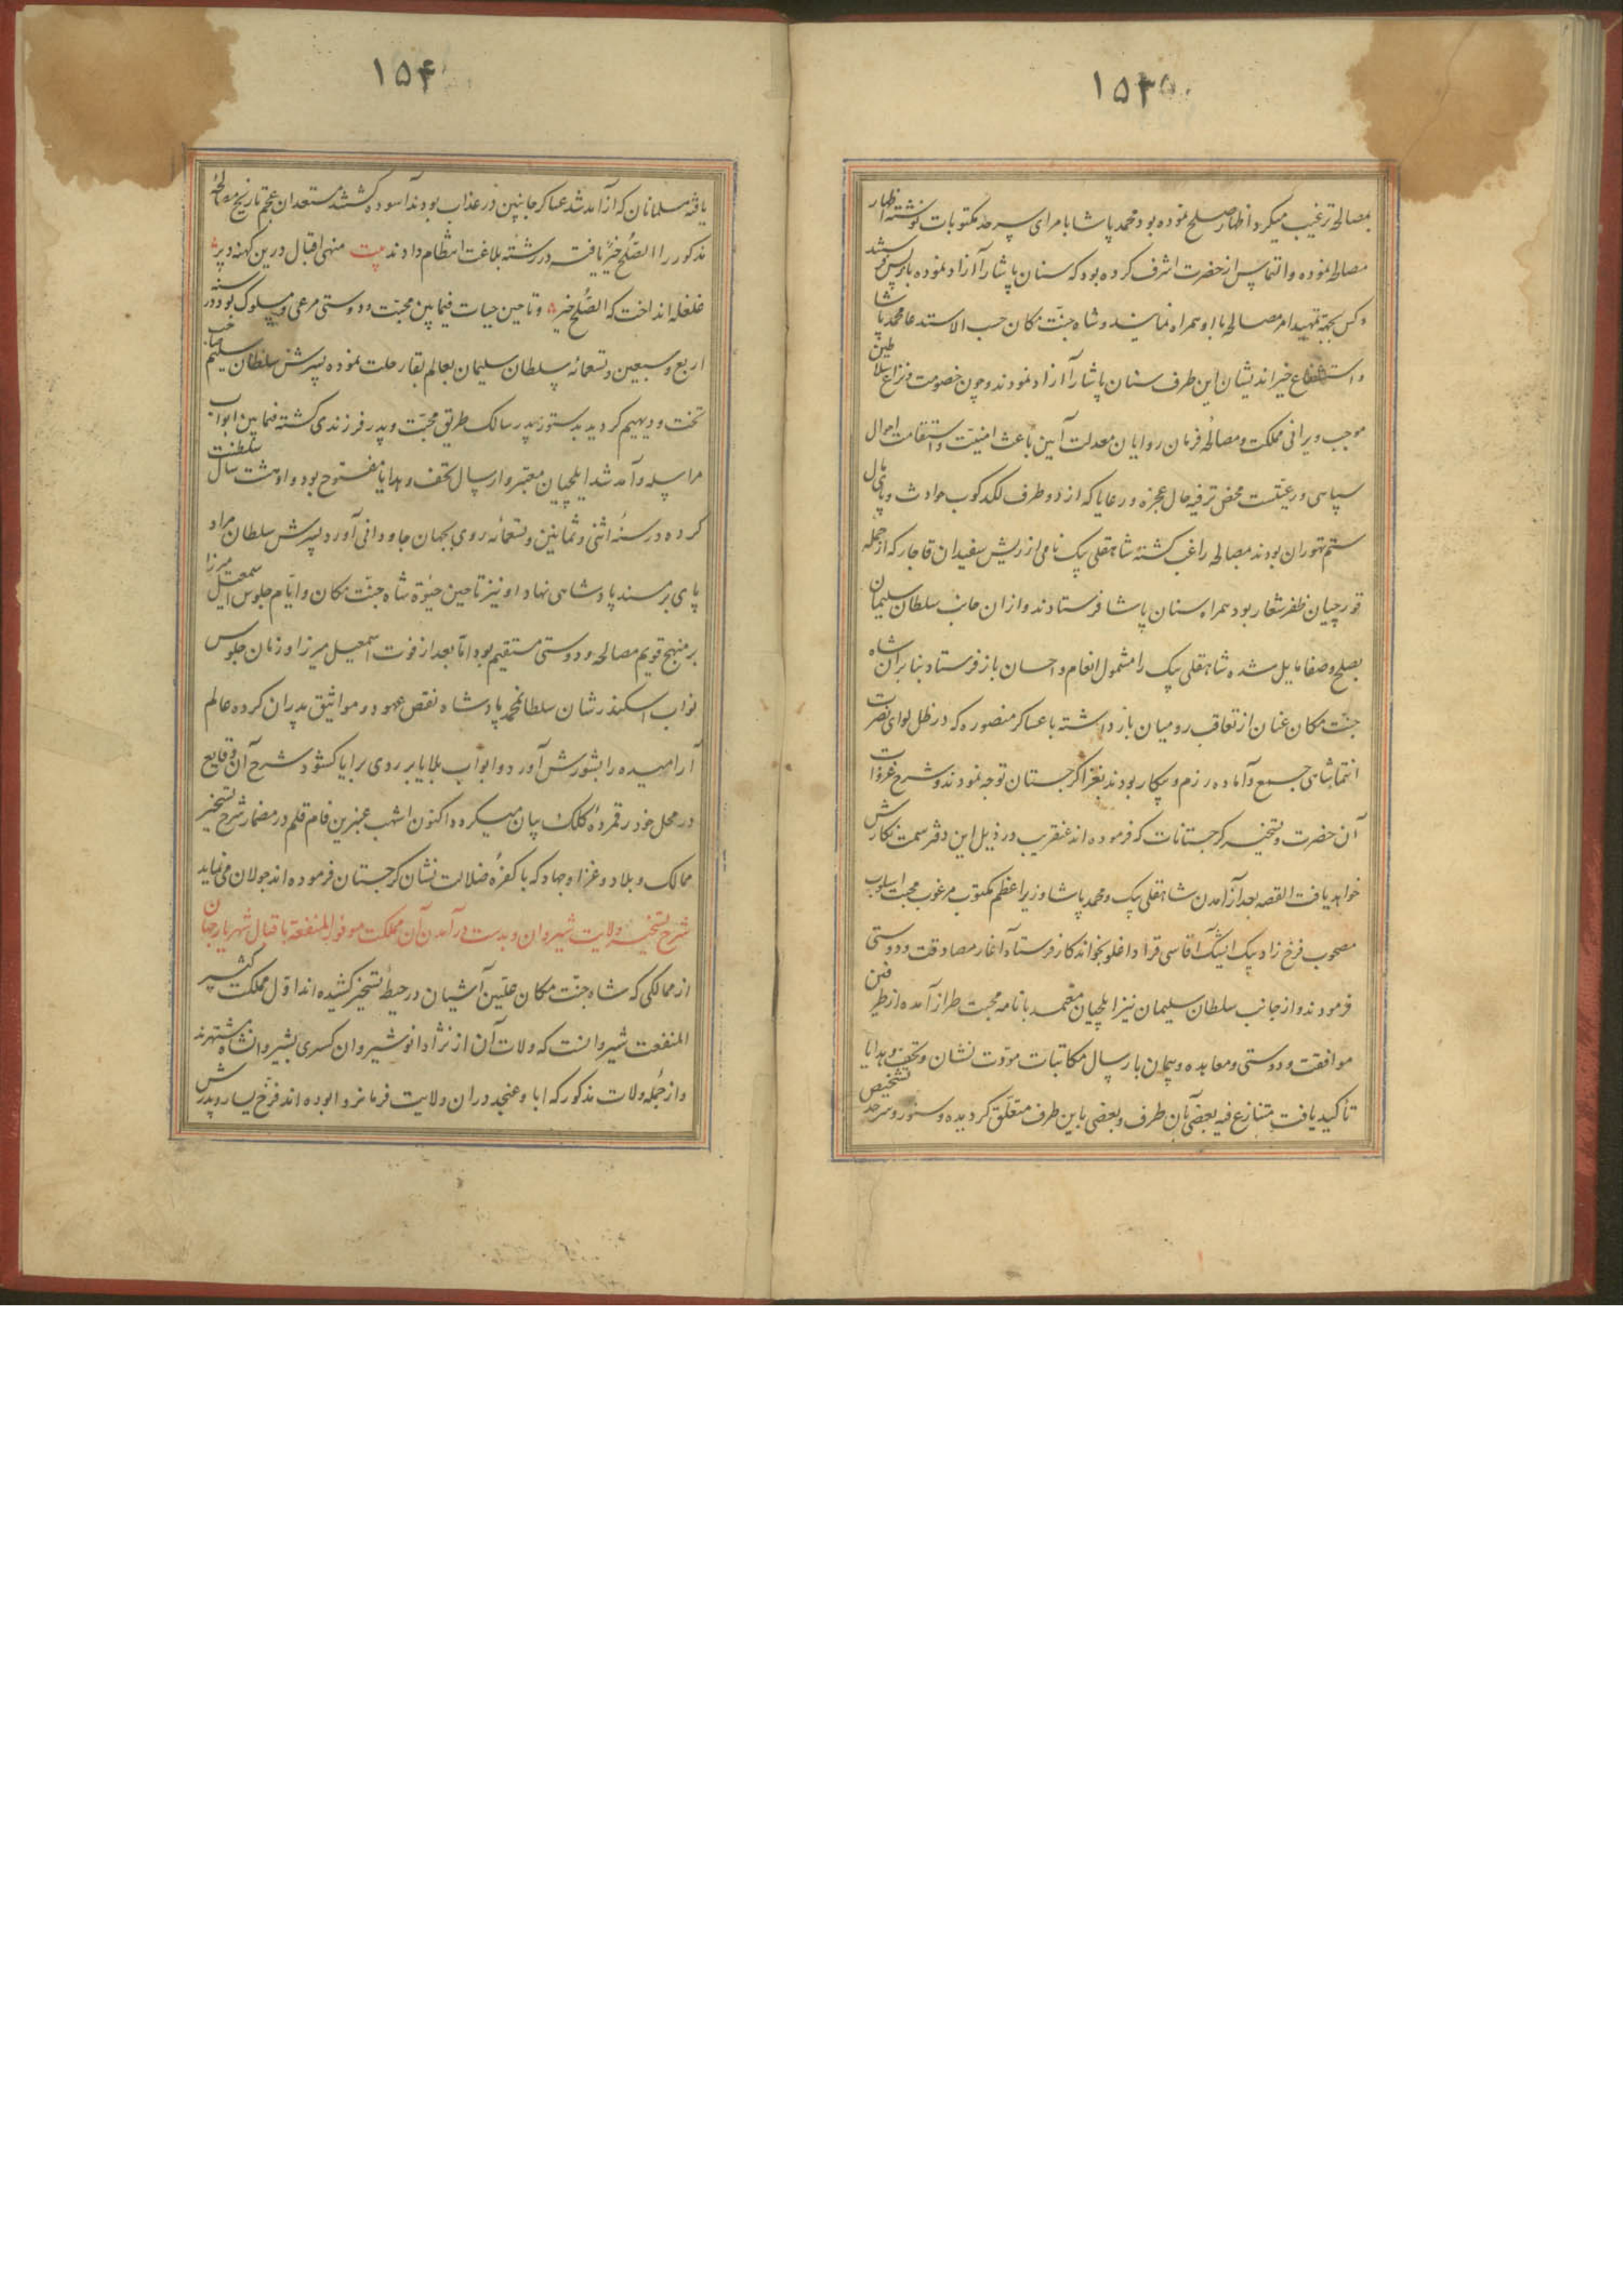 ۱۵۳
بمصالحه ترغیب میکرد اظهار صلح نموده بود محمد پاشا بامرای سرحد مکتوبات نوشته اظهار
مصالحه نموده والتماس از حضرت اشرف کرده بود که سنان پاشا را آزاد نموده باو بفرستند
و کس بجهة تمهید امر مصالحه با او همراه نمایند و شاه جنت مکان حسب الاستدعا محمد پاشا
و استشفاع خیراندیشان این طرف سنان پاشا را آزاد نمودند و چون خصومت و نزاع سلاطین
موجب ویرانی مملکت و مصالحه فرمان روایان معدلت آیین باعث امنیت و استقامت احوال
سپاهی و رعیتست محض ترفیه حال عجزه و رعایا که از دو طرف لگدکوب حوادث و پای مال
ستم ستوران بودند بمصالحه راغب گشته شاهقلی بیک نامی از ریش سفیدان قاجار که از جمله
قورچیان ظفر شعار بود همراه سنان پاشا فرستادند و از ان جانب سلطان سلیمان
بصلح و صفا مایل شده شاهقلی بیک را مشمول انعام و احسان باز فرستاد بنا بران شاه
جنت مکان عنان از تعاقب رومیان باز داشته با عساکر منصوره که در ظل لوای نصرت
انتما شاهی جمع و آماده رزم و پیکار بودند بغزا گرجستان توجه نمودند و شرح غزوات
آن حضرت و تسخیر گرجستانات که فرموده اند عنقریب در ذیل این دفتر سمت نگارش
خواهد یافت القصه بعد از آمدن شاهقلی بیک و محمد پاشا وزیر اعظم مکتوب مرغوب محبت اسلوب
مصحوب فرخ زاد بیک ایشیک آقاسی قراداغلو بخواندکار فرستاد آغاز مصادقت و دوستی
فرمودند و از جانب سلطان سلیمان نیز ایلچیان معتمد با نامه محبت طراز آمده از طرفین
موافقت و دوستی و معاهده و پیمان بارسال مکاتبات مودت نشان و تحف و هدایا
تأکید یافت متنازع فیه بعضی بآن طرف و بعضی باین طرف متعلق گردیده و سنور و سرحد تشخیص
۱۵۴
یافته مسلمانان که از آمد شد عساکر جانبین در عذاب بودند آسوده گشتند مستعدان عجم تاریخ مصالحه
مذکور را الصلح خیر یافته در رشته بلاغت انتظام دادند بیت منهی اقبال درین کهنه دیر
غلغله انداخت که الصلح خیر و تا حین حیات فیمابین محبت و دوستی مرعی و مسلوک بود در سنه
اربع و سبعین و تسعمائه سلطان سلیمان بعالم بقا رحلت نموده پسرش سلطان سلیم صاحب
تخت و دیهیم گردید بدستور پدر سالک طریق محبت و پدر فرزندی گشته فیمابین ابواب
مراسله و آمد شد ایلچیان معتبر و ارسال تحف و هدایا مفتوح بود و او هشت سال سلطنت
کرده در سنه اثنی و ثمانین و تسعمائه روی بجهان جاودانی آورد پسرش سلطان مراد
پای بر مسند پادشاهی نهاد او نیز تا حین حیوة شاه جنت مکان و ایام جلوس اسمعیل میرزا
بر منهج قویم مصالحه و دوستی مستقیم بود اما بعد از فوت اسمعیل میرزا و زمان جلوس
نواب اسکندر شان سلطان محمد پادشاه نقض عهود و مواثیق پدران کرده عالم
آرامیده را بشورش آورد و ابواب بلایا بر روی برایا گشود شرح آن وقایع
در محل خود رقمزده کلک بیان میگردد اکنون اشهب عنبرین فام قلم در مضمار شرح تسخیر
ممالک و بلاد و غزا و جهاد که با کفره ضلالت نشان گرجستان فرموده اند جولان می نماید
شرح تسخیر ولایت شیروان و بدست درآمدن آن مملکت موفور المنفعة باقبال شهریار جهان
از ممالکی که شاه جنت مکان علیین آشیان در حیطه تسخیر کشیده اند اول مملکت کثیر
المنفعت شیروانست که ولات آن از نژاد انوشیروان کسری بشیروانشاه مشتهرند
و از جمله ولات مذکور که ابا و عنجد دران ولایت فرمانروا بوده اند فرخ یسار و پدرش